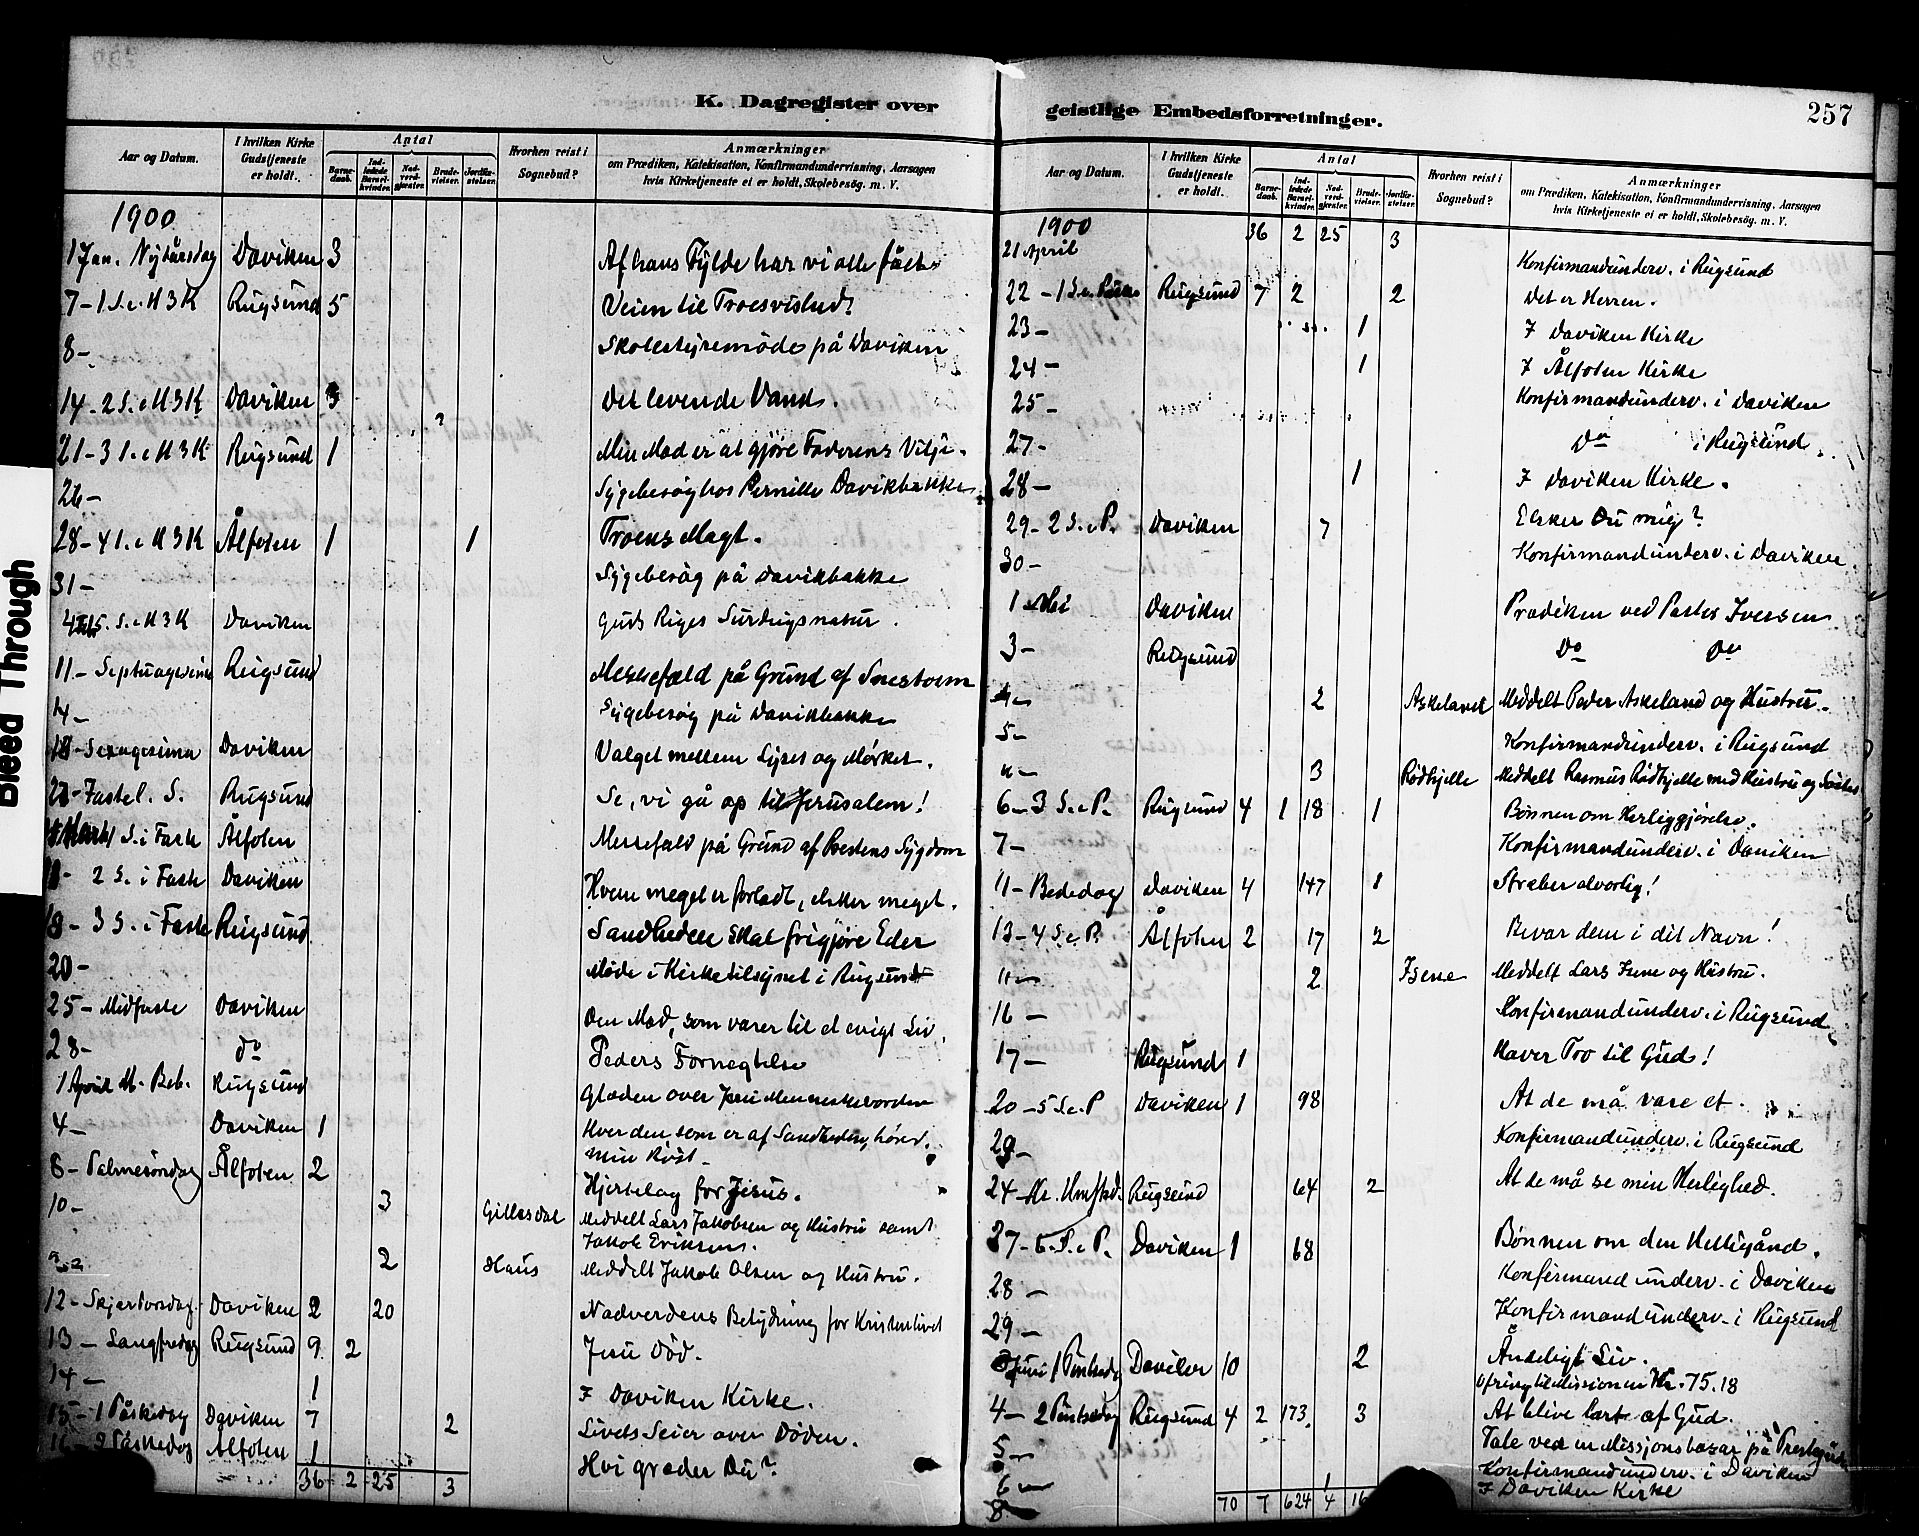 K. Dagregister over
Aar og Datum. I hvilken Kirke Gudstjeneste er holdt. Antal Barnedaab. Indledede Barselkvinder. Nadverdgjæster. Brudevielser. Jordfæstelser. Hvorhen reist i Sognebud? Anmærkninger om Prædiken, Katekisation, Konfirmandundervisning, Aarsagen hvis Kirketjeneste ei er holdt, Skolebesög. m. V.
1900
1 Jan. Nytårsdag Daviken 3 Af hans Fylde har vi alle fået
7 - 1 S. e. H3K Rugsund 5 Veien til Troesvished
8 - Skolestyremøde på Daviken
14 - 2 S. e. H3K Daviken 3 Det levende Vand.
21 - 3 S. e. H3K Rugsund 1 Min Mad er at gjøre Faderens Vilje.
26 - Sygebesøg hos Pernille Davikbakke
28 - 4 S. e. H3K Ålfoten 1 1 Troens Magt.
31 - Sygebesøg på Davikbakke
4 Feb 5. S. e. H3K Daviken Guds Riges Surdeigsnatur.
11 - Septuagesima Rugsund Messefald på Grund af Snestorm
14 - Sygebesøg på Davikbakke
18 - Sexagesima Daviken Valget mellem Lyset og Mørket.
Fastel. S. Rugsund Se, vi gå op til Jerusalem!
Marts S. i Faste Ålfoten Messefald på Grund af Prestens Sygdom
2 S. i Faste Daviken Hvem meget er forladt, elsker meget.
18 - 3 S. i Faste Rugsund Sandheden skal frigjøre Eder
20 - Møde i Kirketilsynet i Rugsund
25 - Midfaste Daviken Den Mad, som varer til et evigt Liv.
28 - Do Peders Fornegtelse
1 April M. Beb. Rugsund Glæden over Jesu Menneskevorden
4 - Daviken 1 Hver den, som er af Sandheden, hører
min Røst.
8 - Palmesøndag Ålfoten 2 Hjertelag for Jesus.
10 - 3 Gillesdal Meddelt Lars Jakobsen og Hustru samt
Jakob Eriksen.
2 Haus Meddelt Jakob Olsen og Hustru.
12 - Skjertorsdag Daviken 2 20 Nadverdens Betydning for Kristenlivet
13 - Langfredag Rugsund 9 2 Jesu Død.
14 - 1 I Daviken Kirke.
15 - 1 Påskedag Daviken 7 2 Livets Seier over Døden.
16 - 2 Påskedag Ålfoten 1 Hvi græder Du?
36 2 25 3
geistlige Embedsforretninger.
257
Aar og Datum. I hvilken Kirke Gudstjeneste er holdt. Antal Barnedaab. Indledede Barselkvinder. Nadverdgjæster. Brudevielser. Jordfæstelser. Hvorhen reist i Sognebud? Anmærkninger om Prædiken, Katekisation, Konfirmandundervisning, Aarsagen hvis Kirketjeneste ei er holdt, Skolebesög. m. V.
1900 36 2 25 3
21 April Konfirmandunderv. i Rugsund
22 - 1 S. e. Påske Rugsund 7 2 2 Det er Herren.
23 - 1 I Daviken Kirke
24 - 1 I Ålfoten Kirke
25 - Konfirmandunderv. i Daviken
27 - Do i Rugsund.
28 - 1 I Daviken Kirke.
29 - 2 S. e. P. Daviken 7 Elsker Du mig?
30 - Konfirmandunderv. i Daviken
1 Mai Daviken Prædiken ved Pastor Iversen
3 - Rugsund Do Do
4 - 2 Askeland Meddelt Peder Askeland og Hustru.
5 - Konfirmandunderv. i Rugsund
" - 3 Rødhjelle Meddelt Rasmus Rødhjelle med Hustru og Søster
6 - 3 S. e. P. Rugsund 4 1 18 1 Bønnen om Herliggjørelse.
7 - Konfirmandunderv. i Daviken
11 - Bededag Daviken 4 147 1 Stræber alvorlig!
13 - 4 S. e. P. Ålfoten 2 17 2 Bevar dem i dit Navn!
" - 2 Isene Meddelt Lars Isene og Hustru.
16 - Konfirmandunderv. i Rugsund
17 - Rugsund 1 Haver Tro til Gud!
20 - 5 S. e. P Daviken 1 98 At de må være et.
Konfirmandunderv. i Rugsund
24 - Kr. Himfhd. Rugsund 64 2 At de må se min Herlighed.
27 - 6. S. e. P. Daviken 1 68 Bønnen om den Helligånd.
28 - Konfirmandunderv. i Daviken
29 - Konfirmandunderv. i Rugsund
3 Juni 1 Pintsedag Daviken 10 2 Åndeligt Liv.
Ofring til Missionen Kr. 75.18
4 - 2 Pintsedag Rugsund 4 2 173 3 At blive lært af Gud.
5 - Tale ved en Missjonsbazar på Prestegård
6 - Konfirmandunderv. i Daviken
8 - 1 I Daviken Kirke
70 7 624 4 16
Bleed Through